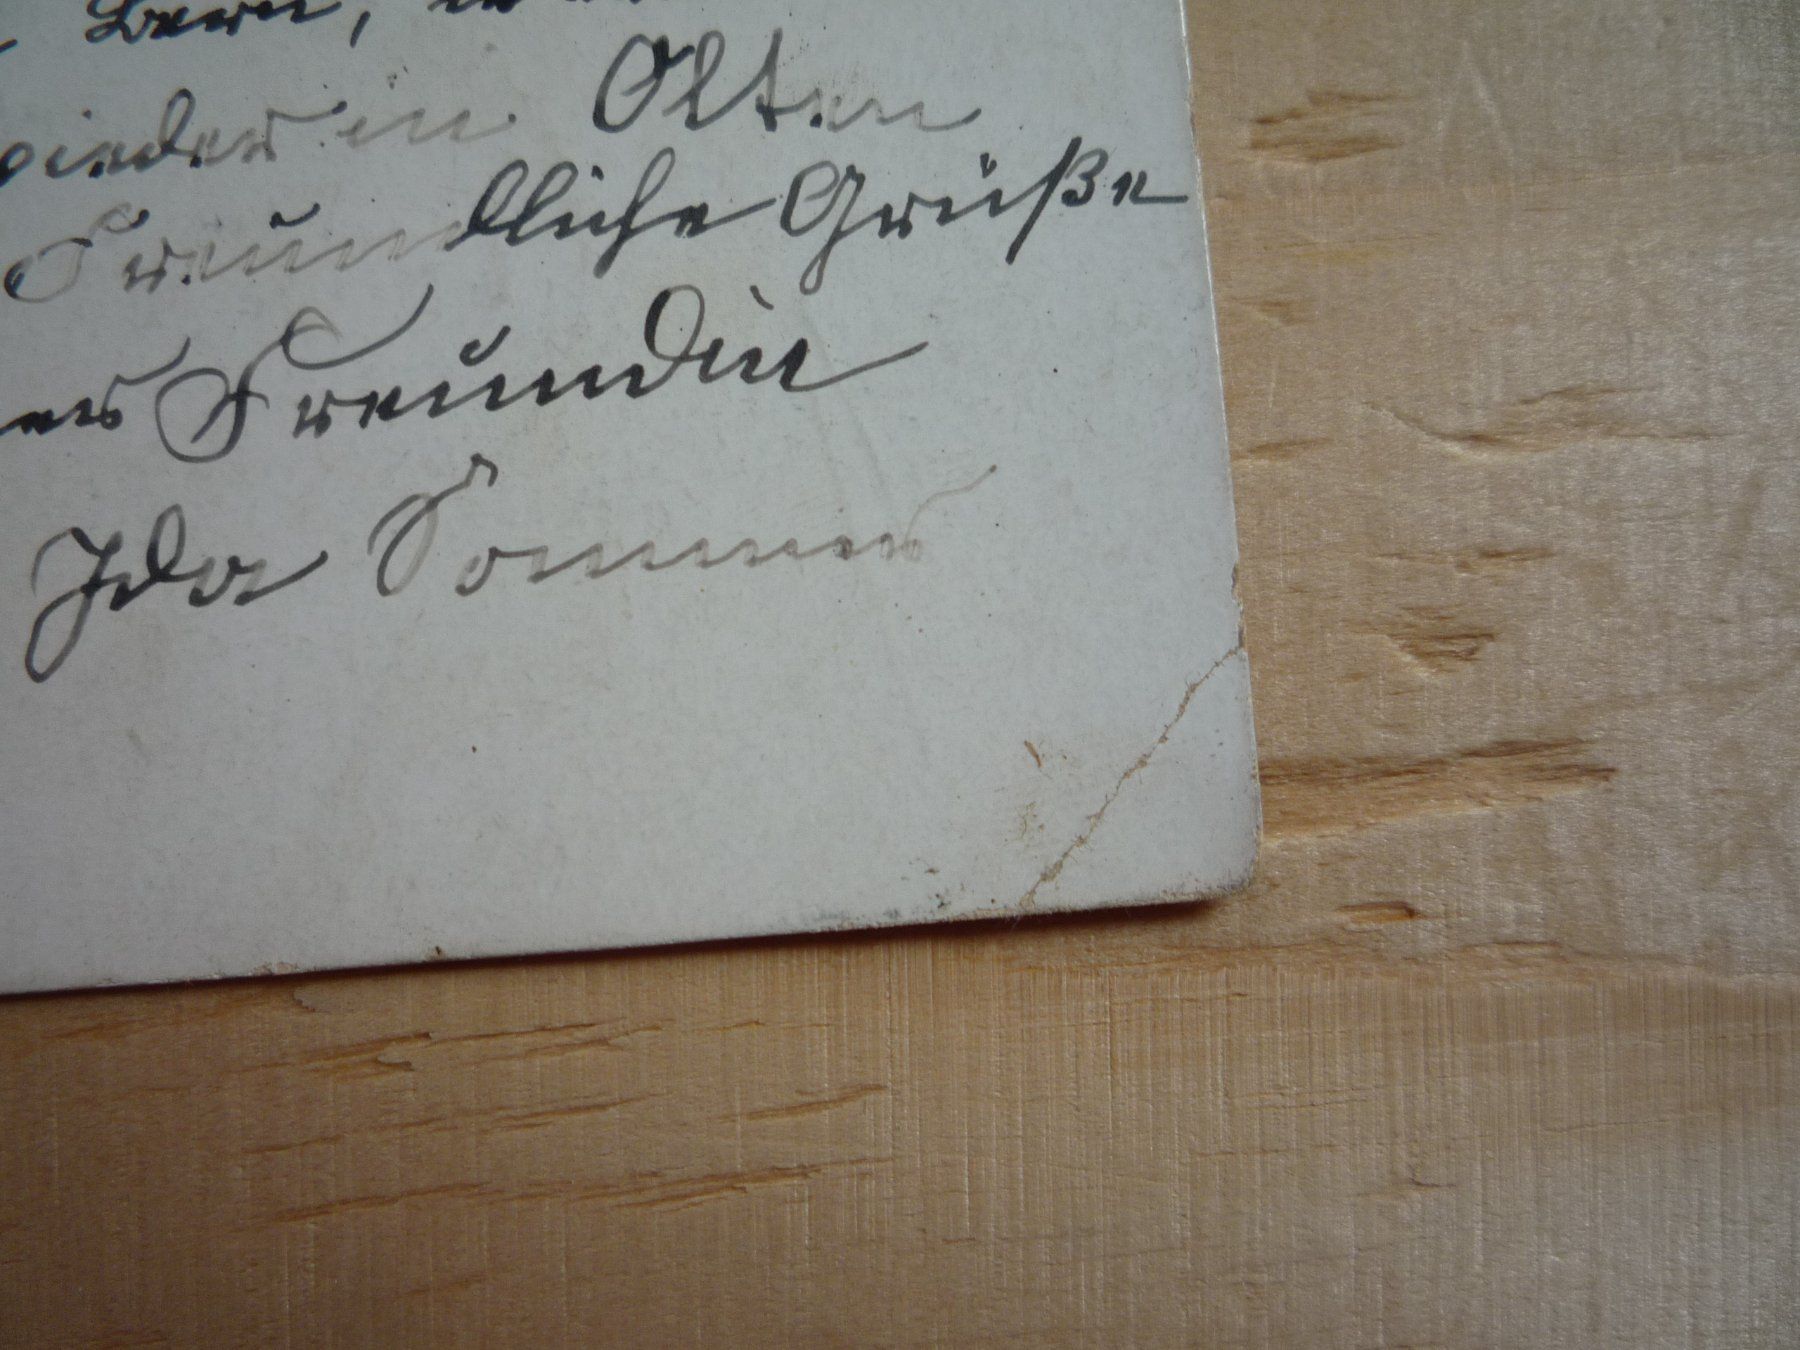 Bern,
wieder in Olten
Freundliche Grüße
Freundin
Ida Sommer